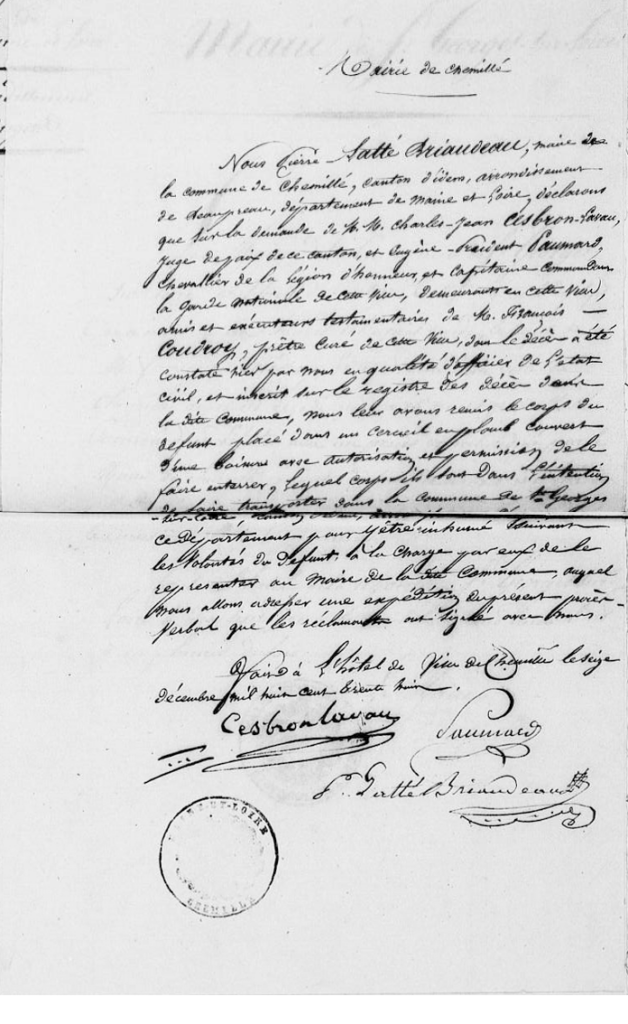 Mairie de Chemillé
Nous Pierre Gatté Briaudeau, maire de
la commune de Chemillé, canton d'idem, arrondissement
de Beaupreau, département de Maine et Loire, déclarons
que sur la demande de M. M. Charles-Jean Cesbron-Lavau,
juge de paix de ce canton, et Eugène-Trident Paumard,
Chevallier de la légion d'honneur, et Capitaine Commandant
la Garde nationale de cette Ville, demeurants en cette Ville,
amis et exécuteurs testamentaires de M. François
Coudroy, prêtre Curé de cette Ville, dont le décès a été
constaté hier par nous en qualité d'officier de l'état
civil, et inscrit sur le registre des décès de
la dite Commune, nous leur avons remis le corps du
défunt placé dans un cercueil en plomb couvert
d'une avec autorisation et permission de le
faire enterrer, lequel corps ils sont dans l'intention
de faire transporter dans la commune de St Georges
sur-Loire,
ce département pour y être inhumé suivant
les volontés du Defunt, à la charge par eux de le
representer au Maire de la dite Commune, auquel
nous allons adresser une expédition du présent procès-
Verbal que les réclamants ont signé avec nous.
Fait à l'hôtel de Ville de Chemillé le seize
décembre mil huit cent trente huit.
Cesbron Lavau
Paumard
P. Gatté Briaudeau
MAINE-ET-LOIRE
CHEMILLÉ